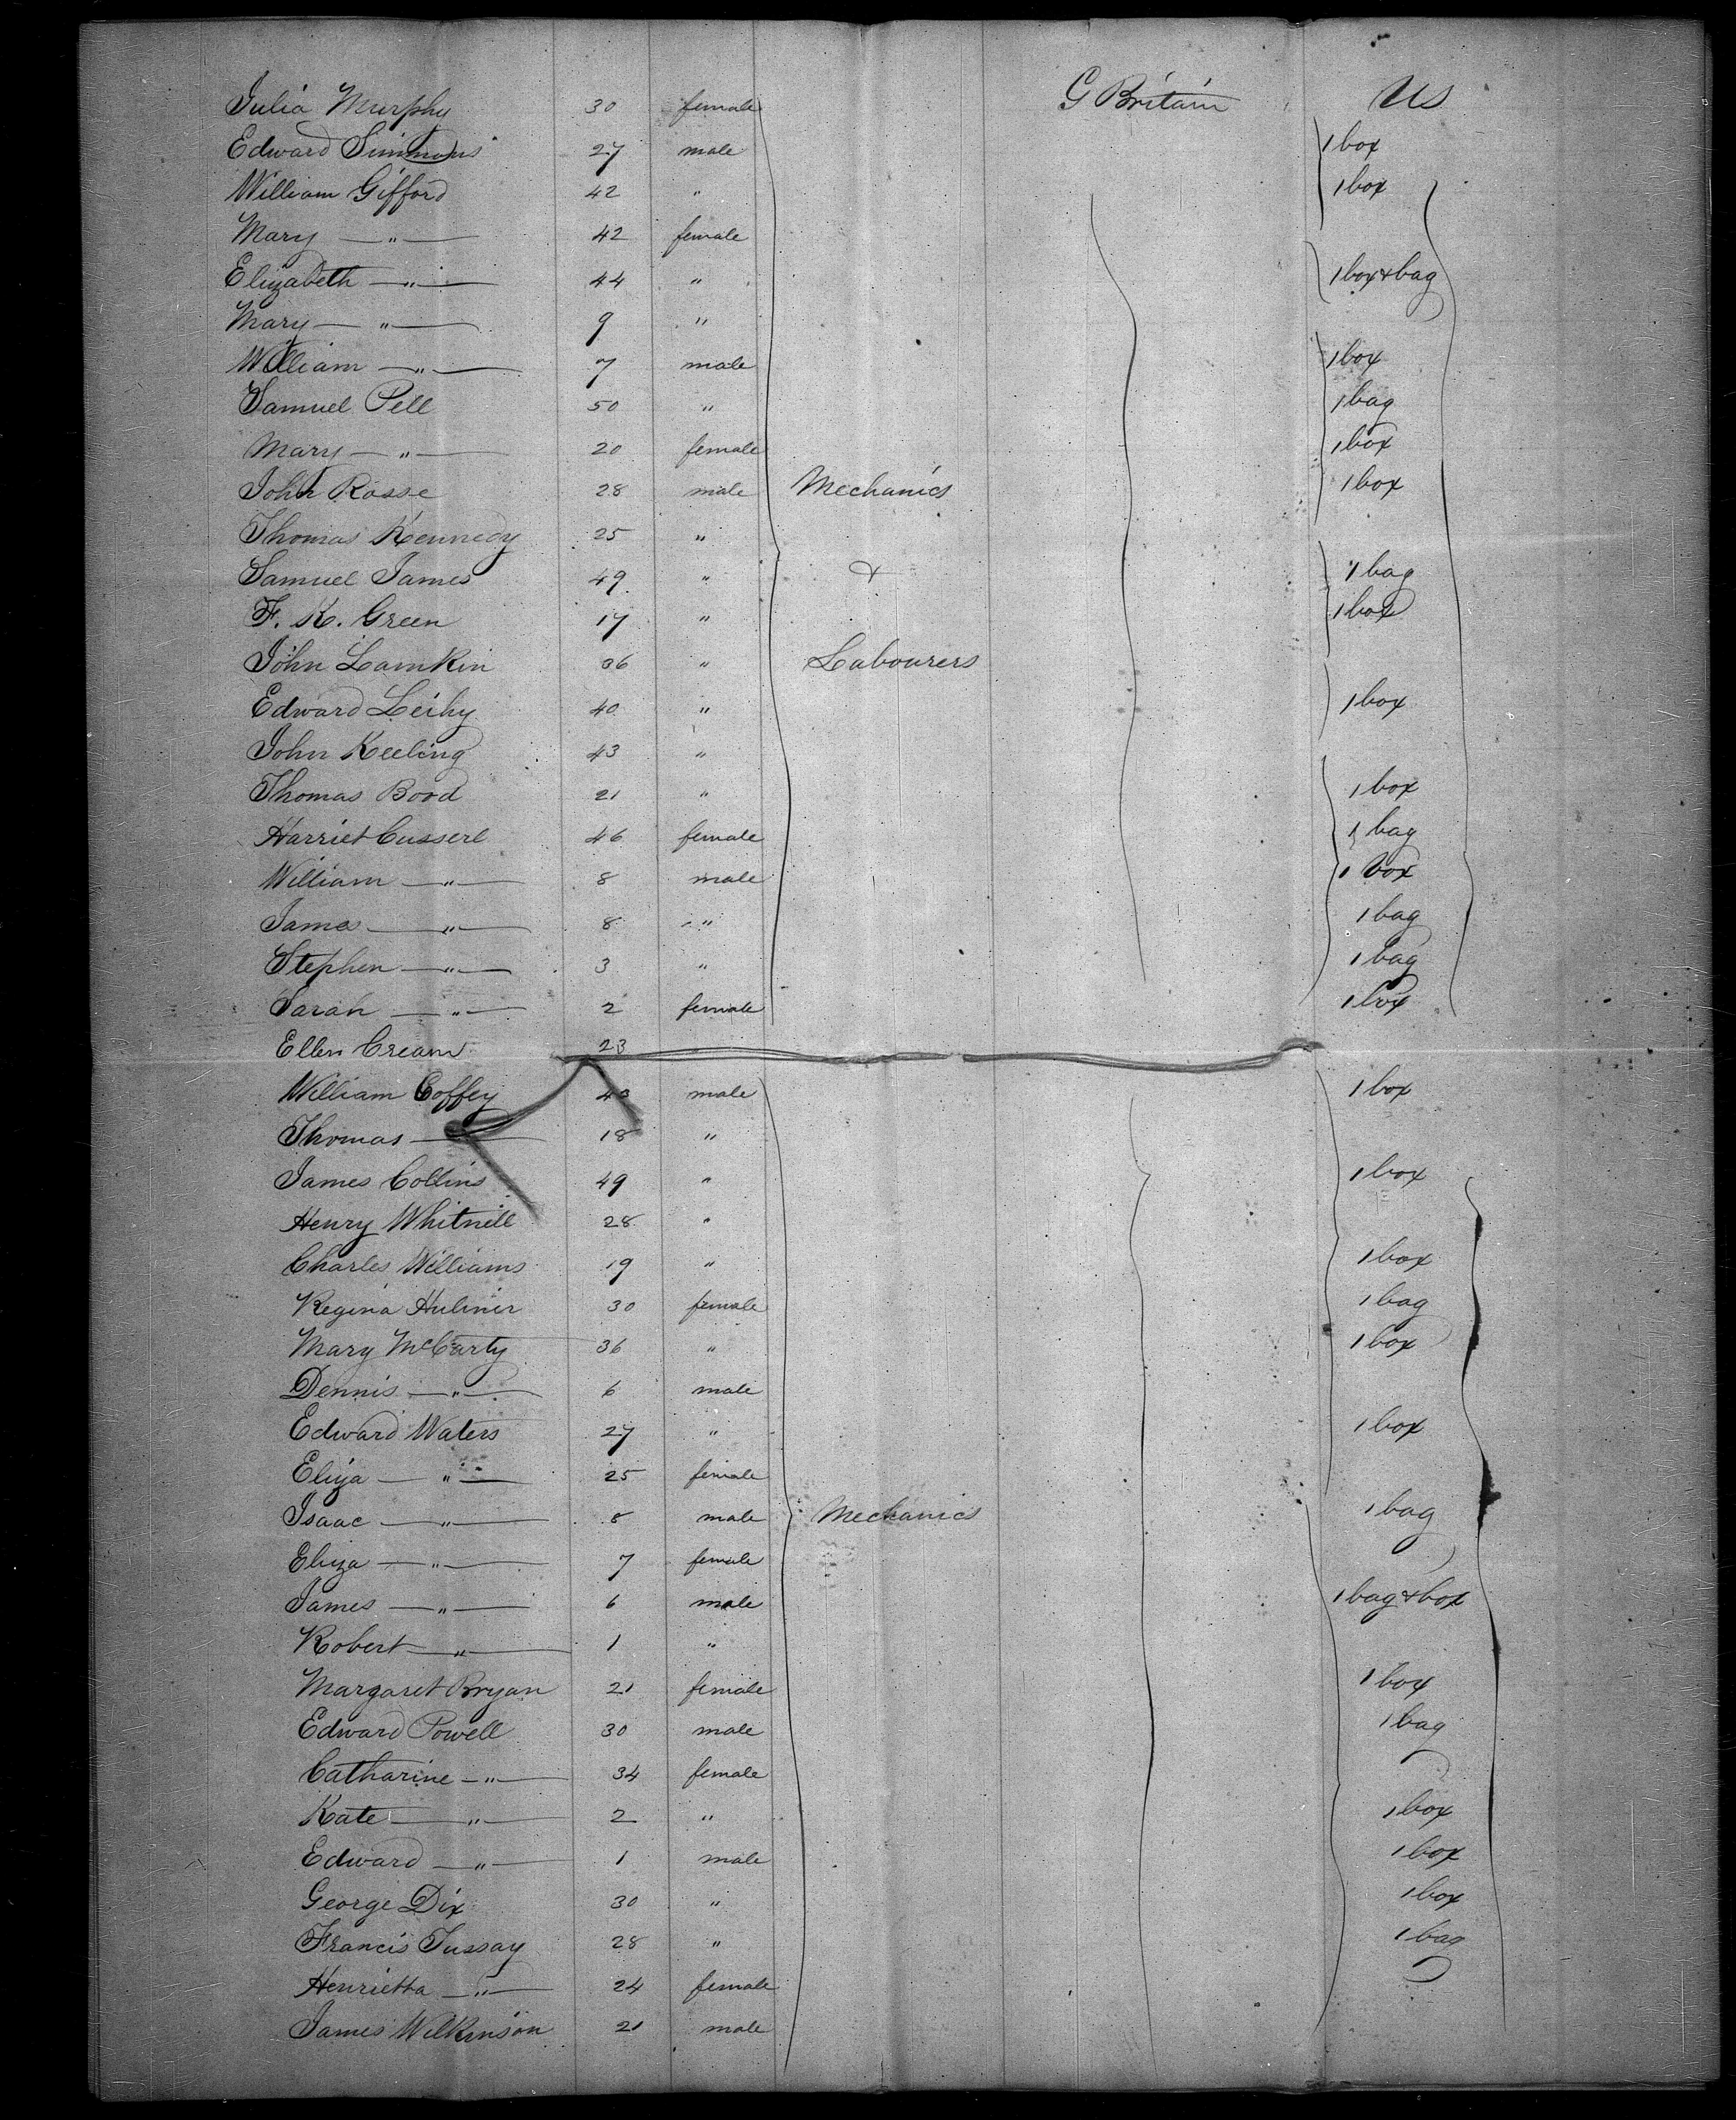 Julia Murphy 30 female G Britain US
Edward Simmons 27 male 1 box
William Gifford 42 " 1 box
Mary — " — 42 female
Elizabeth — " — 44 " 1 box & bag
Mary — " — 9 "
William — " — 7 male 1 box
Samuel Pell 50 " 1 bag
Mary — " — 20 female 1 box
John Rosse 28 male Mechanics 1 box
Thomas Kennedy 25 "
Samuel James 49 " & 1 bag
F. K. Green 17 " 1 box
John Lamkin 36 " Labourers
Edward Leihy 40 " 1 box
John Keeling 43 "
Thomas Bood 21 " 1 box
Harriet Cusserl 46 female 1 bag
William — " — 8 male 1 box
James — " — 8 " 1 bag
Stephen — " — 3 " 1 bag
Sarah — " — 2 female 1 box
Ellen Cream 23
William Coffey 43 male 1 box
Thomas — 18 "
James Collins 49 " 1 box
Henry Whitnill 28 "
Charles Williams 19 " 1 box
Regina Huliner 30 female 1 bag
Mary McCarty 36 " 1 box
Dennis — " — 6 male
Edward Waters 27 " 1 box
Eliza — " — 25 female
Isaac — " — 8 male Mechanics 1 bag
Eliza — " — 7 female
James — " — 6 male 1 bag & box
Robert — " — 1 "
Margaret Bryan 21 female 1 box
Edward Powell 30 male 1 bag
Catharine — " — 34 female
Kate — " — 2 " 1 box
Edward — " — 1 male 1 box
George Dix 30 " 1 box
Francis Tussay 28 " 1 bag
Henrietta — " — 24 female
James Wilkinson 21 male